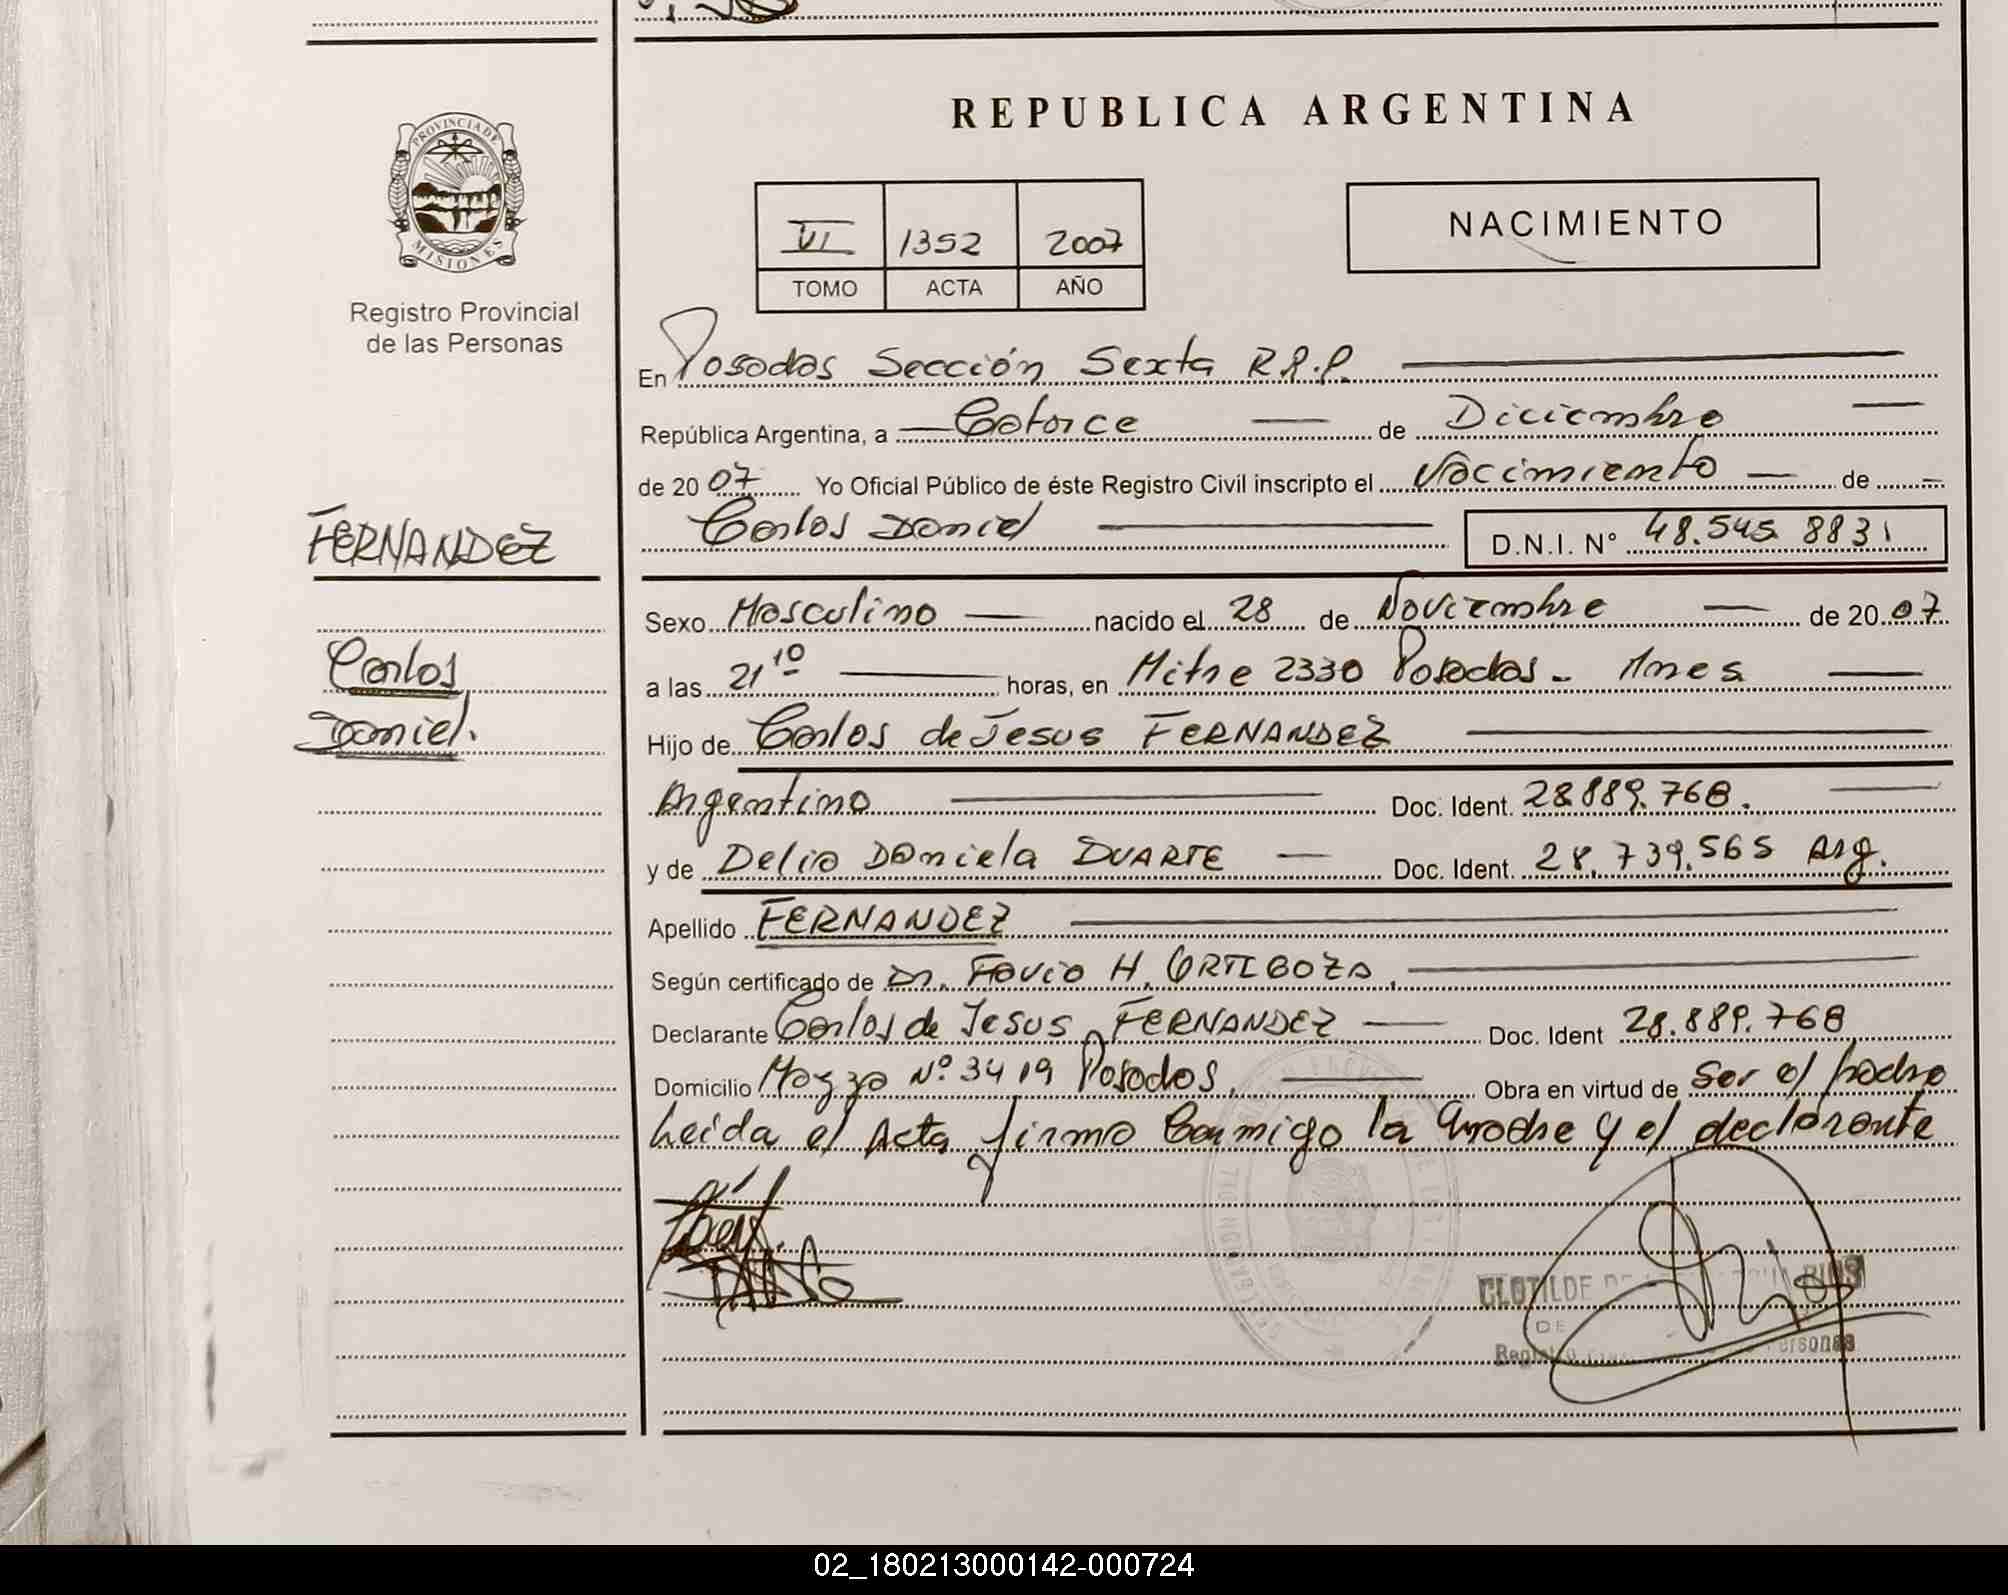 REPUBLICA ARGENTINA
PROVINCIA DE
MISIONES
Registro Provincial
de las Personas
VI 1352 2007
TOMO ACTA AÑO
NACIMIENTO
En Posadas Sección Sexta R.P.P.
República Argentina, a Catorce de Diciembre
de 20 07 Yo Oficial Público de éste Registro Civil inscripto el Nacimiento de
Carlos Daniel D.N.I. N° 48.545.883
FERNANDEZ
Carlos
Daniel.
Sexo Masculino nacido el 28 de Noviembre de 20 07
a las 21 10 horas, en Mitre 2330 Posadas - Mnes
Hijo de Carlos de Jesus FERNANDEZ
Argentino Doc. Ident. 28.889.768.
y de Delia Daniela DUARTE Doc. Ident. 28.739.565 Arg.
Apellido FERNANDEZ
Según certificado de Dr. Favio H. ORTIGOZA.
Declarante Carlos de Jesus FERNANDEZ Doc. Ident 28.889.768
Domicilio Mazza N° 3419 Posadas. Obra en virtud de Ser el padre
Leida el Acta firma Conmigo la madre y el declarante
CLOTILDE DE RIOS
DE
Personas
02_180213000142-000724